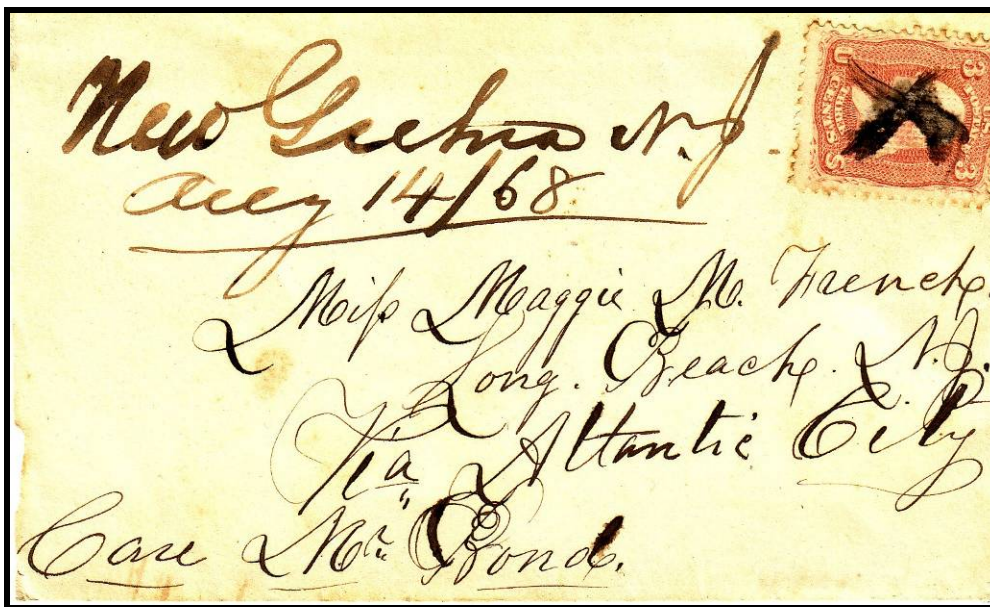 New Gretna N.J
Aug 14/68
Miss Maggie M. French.
Long. Beach. N.J.
Via Atlantic City
Care Mr. Bond.
U S
3 3
CENTS